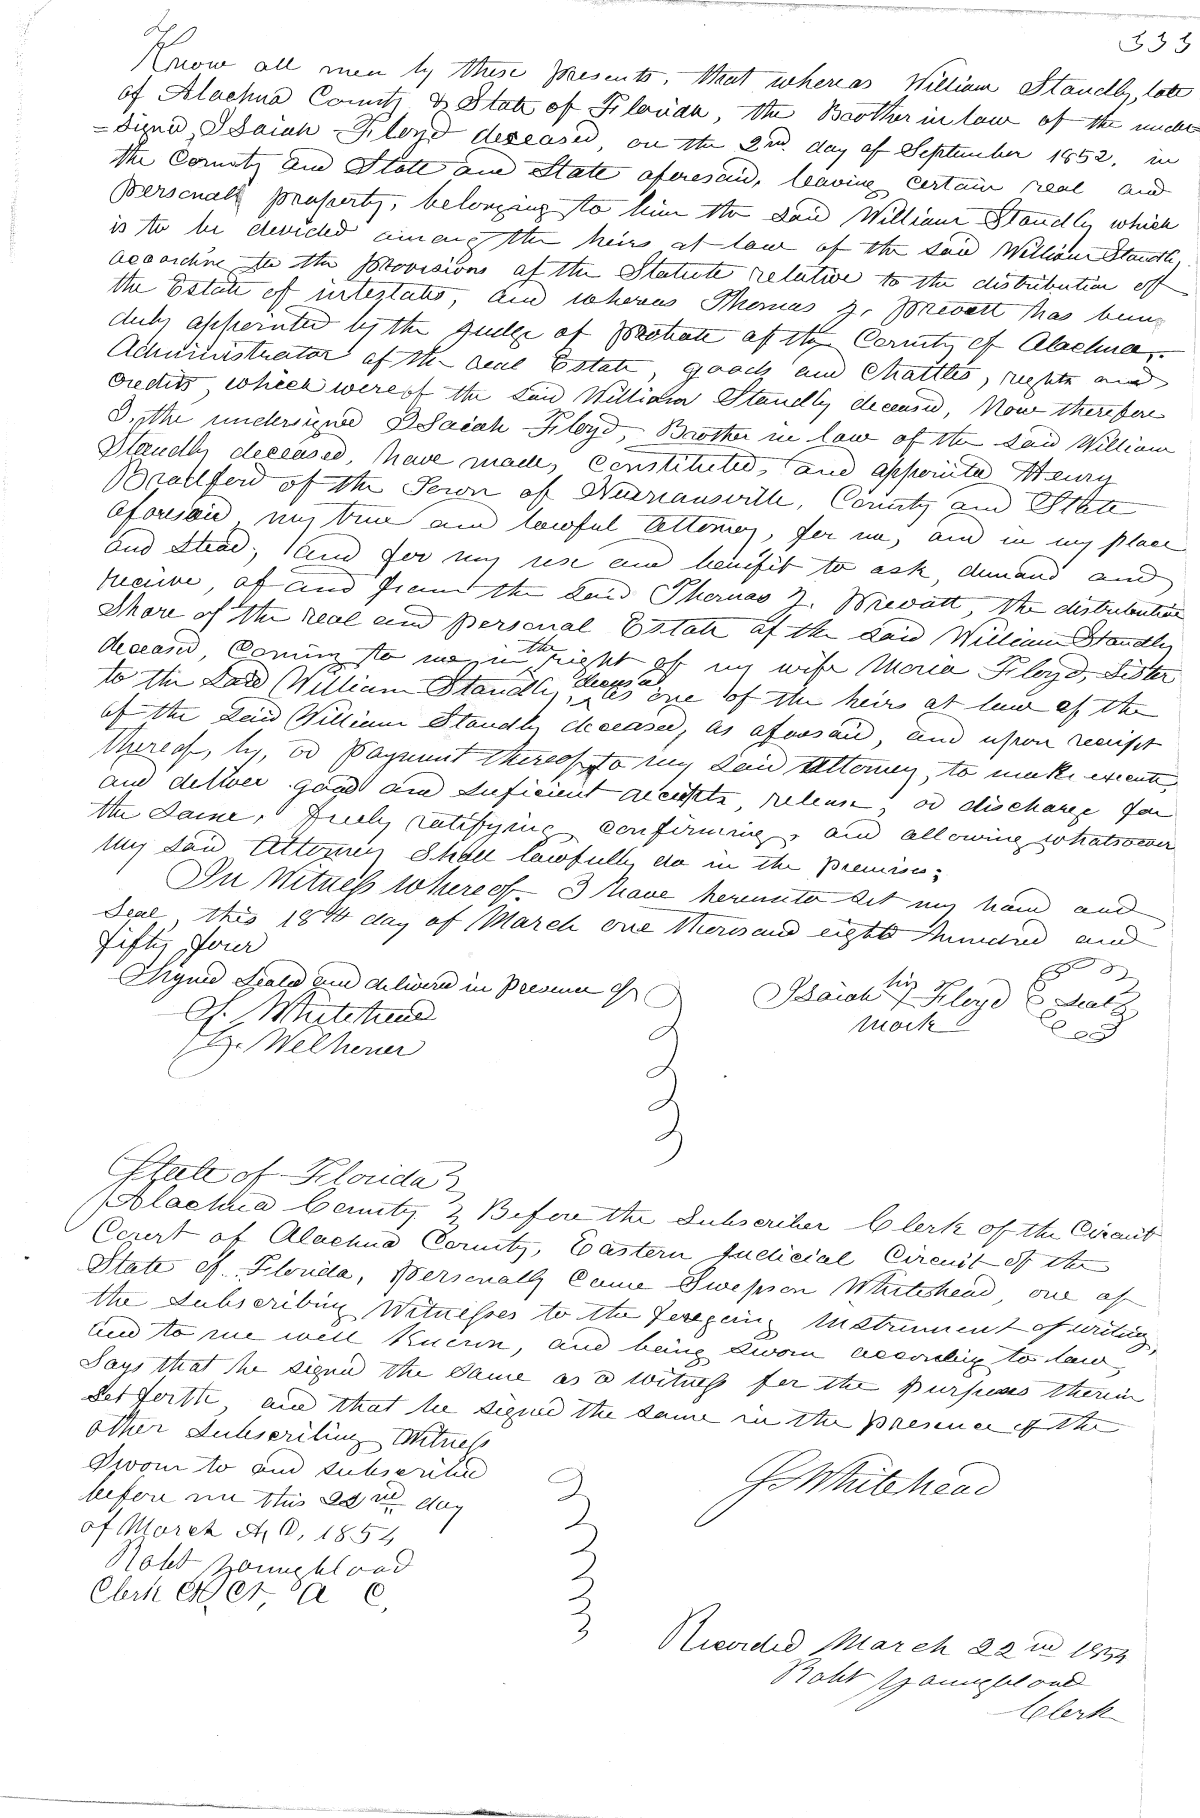 333
Know all men by these presents, that whereas William Standly, late
of Alachua County & State of Florida, the Brother in law of the under
=signed, Isaiah Floyd deceased, on the 2nd day of September 1852, in
the County and State and State aforesaid, leaving certain real and
personal property, belonging to him the said William Standly which
is to be devided among the heirs at law of the said William Standly,
according to the provisions of the Statute relative to the distribution of
the Estate of intestates, and whereas Thomas J. Prevatt has been
duly appointed by the Judge of Probate of the County of Alachua,
Administrator of the real Estate, goods and Chattles, rights and
credits, which were of the said William Standly deceased, Now therefore
I, the undersigned Isaiah Floyd, Brother in law of the said William
Standly deceased, have made, constituted, and appointed Henry
Bradford of the Town of Newnansville, County and State
aforesaid, my true and lawful Attorney, for me, and in my place
and stead, and for my use and benifit to ask, demand and
receive, of and from the said Thomas J. Prevatt, the distributive
share of the real and personal Estate of the said William Standly
deceased, coming to me in the right of my wife Maria Floyd, Sister
to the said William Standly, deceased as one of the heirs at law of the
of the said William Standly deceased, as aforesaid, and upon receipt
thereof, by, or payment thereof to my said Attorney, to make execute,
and deliver good and suficient receipts, release, or discharge for
the same, freely ratifying, confirming, and allowing whatsoever
my said Attorney shall lawfully do in the premises;
In Witness whereof I have hereunto set my hand and
seal, this 18th day of March one thousand eight hundred and
fifty four
Signed Sealed and delivered in presence of
Isaiah his Floyd Seal
mark
S. Whitehead
State of Florida
Alachua County Before the Subscriber Clerk of the Circuit
Court of Alachua County, Eastern Judicial Circuit of the
State of Florida, personally came Swepson Whitehead, one of
the subscribing Witnesses to the foregoing instrument of writing,
and to me well known, and being sworn according to law,
says that he signed the same as a witness for the purposes therein
set forth, and that he signed the same in the presence of the
other subscribing Witness
Sworn to and subscribed
before me this 22nd day
of March A, D, 1854
S Whitehead
Robt Youngblood
Clerk A C,
Recorded March 22nd 1854
Robt Youngblood
Clerk